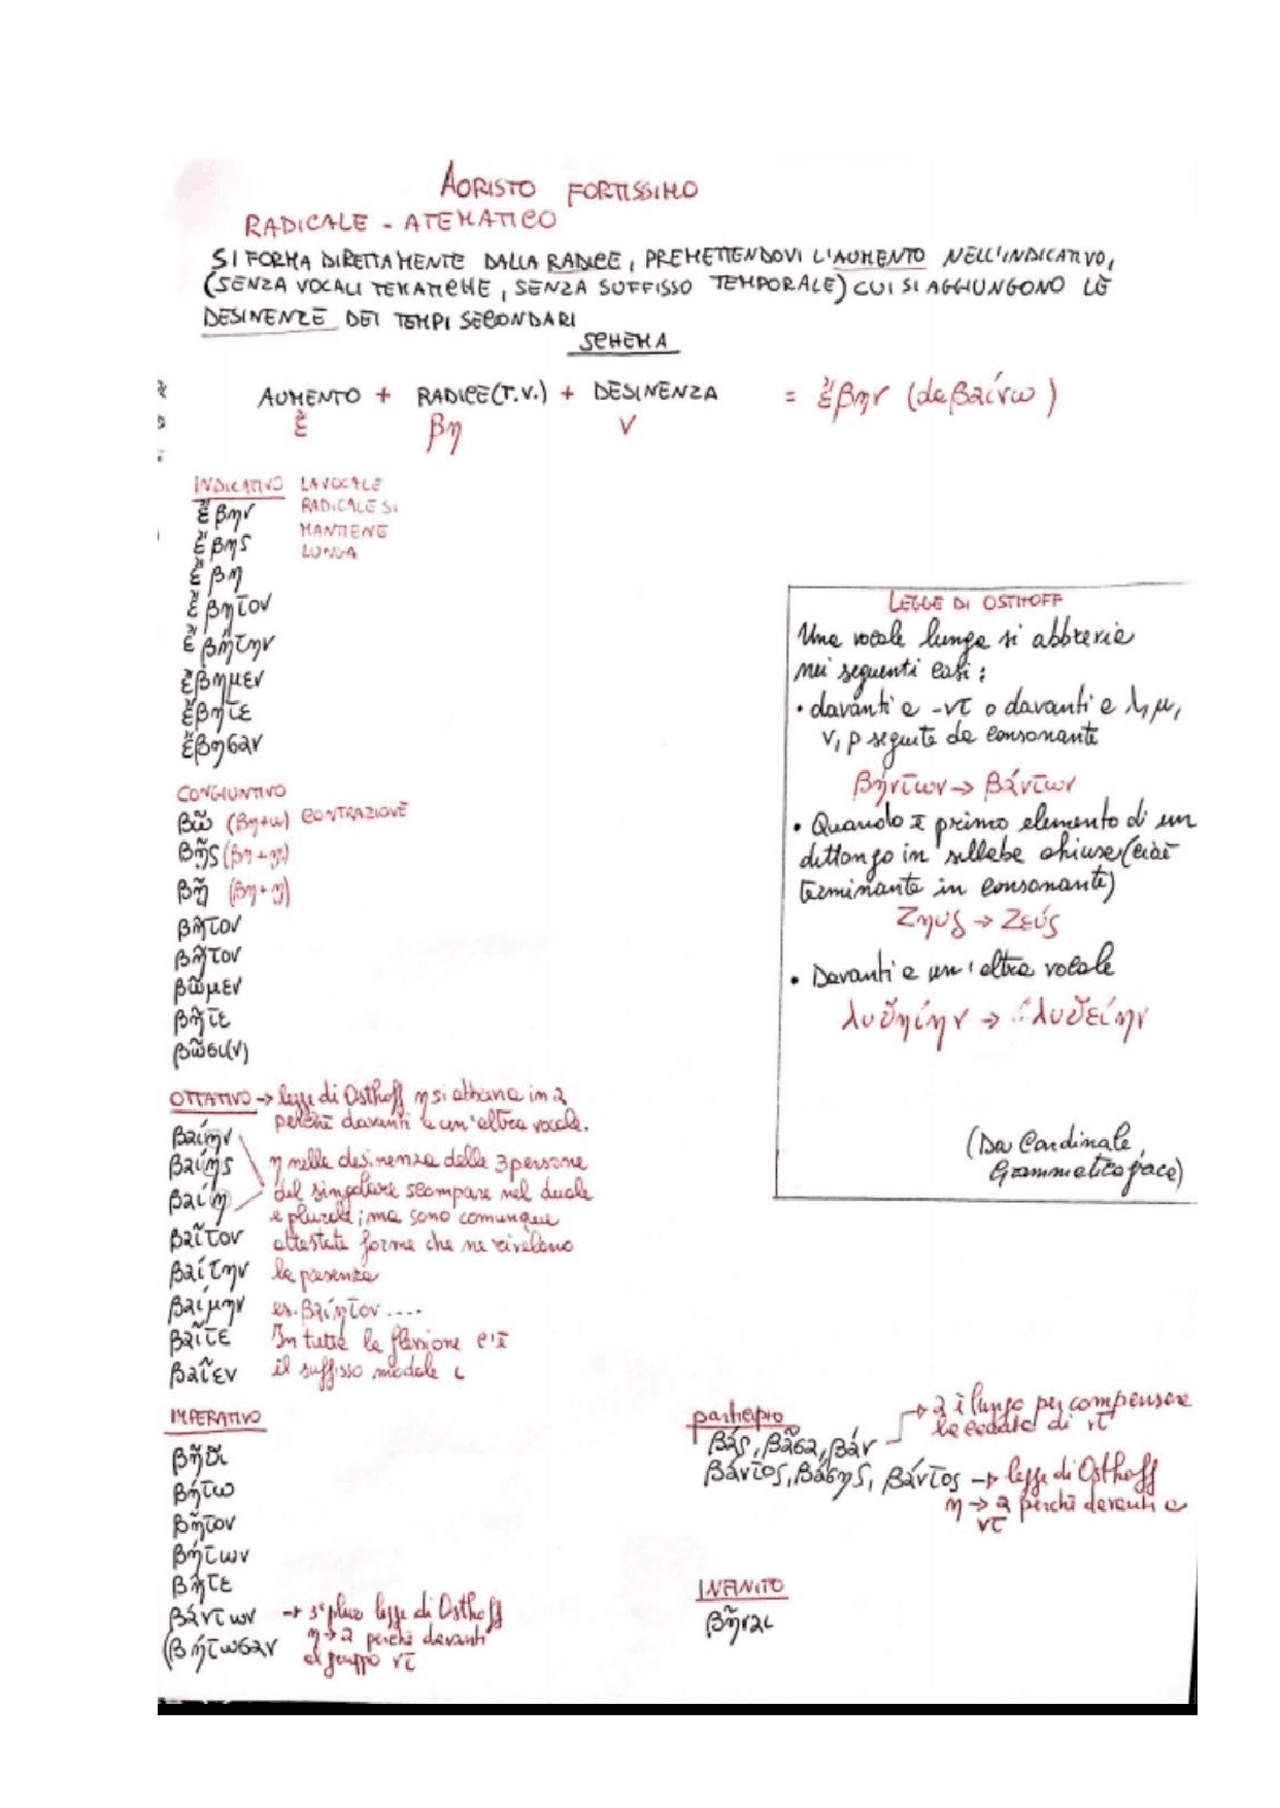 AORISTO FORTISSIMO
RADICALE - ATEMATICO
SI FORMA DIRETTAMENTE DALLA RADICE, PREMETTENDOVI L'AUMENTO NELL'INDICATIVO,
(SENZA VOCALI TEMATICHE, SENZA SUFFISSO TEMPORALE) CUI SI AGGIUNGONO LE
DESINENZE DEI TEMPI SECONDARI
SCHEMA
AUMENTO + RADICE (T.V.) + DESINENZA = ἔβην (da βαίνω)
ἔ βη ν
INDICATIVO LA VOCALE
RADICALE SI
MANTIENE
LUNGA
ἔβην
ἔβης
ἔβη
ἔβητον
ἐβήτην
ἔβημεν
ἔβητε
ἔβησαν
CONGIUNTIVO
βῶ (βη+ω) CONTRAZIONE
βῇς (βη+ῃς)
βῇ (βη+ῃ)
βῆτον
βῆτον
βῶμεν
βῆτε
βῶσι(ν)
OTTATIVO → legge di Osthoff η si abbrevia in α
perchè davanti a un'altra vocale.
βαίην
βαίης η nelle desinenze delle 3 persone
βαίη del singolare scompare nel duale
e plurale; ma sono comunque
βαῖτον attestate forme che ne rivelano
βαίτην la presenza
βαίμην es. βαίητον ....
βαῖτε In tutta la flessione c'è
βαῖεν il suffisso modale ι
IMPERATIVO
βῆθι
βήτω
βῆτον
βήτων
βῆτε
βάντων → 3ª plur legge di Osthoff
(βήτωσαν η→α perchè davanti
al gruppo ντ
LEGGE DI OSTHOFF
Una vocale lunga si abbrevia
nei seguenti casi:
• davanti a -ντ o davanti a λ, μ,
ν, ρ seguite da consonante
βήντων → βάντων
• Quando è primo elemento di un
dittongo in sillaba chiusa (cioè
terminante in consonante)
Ζηυς → Ζεύς
• Davanti a un'altra vocale
λυθηίην → λυθείην
(Da Cardinale,
Grammatica greca)
participio → α è lungo per compensare
la caduta di ντ
βάς, βᾶσα, βάν
βάντος, βάσης, βάντος → legge di Osthoff
η → α perchè davanti a
ντ
INFINITO
βῆναι